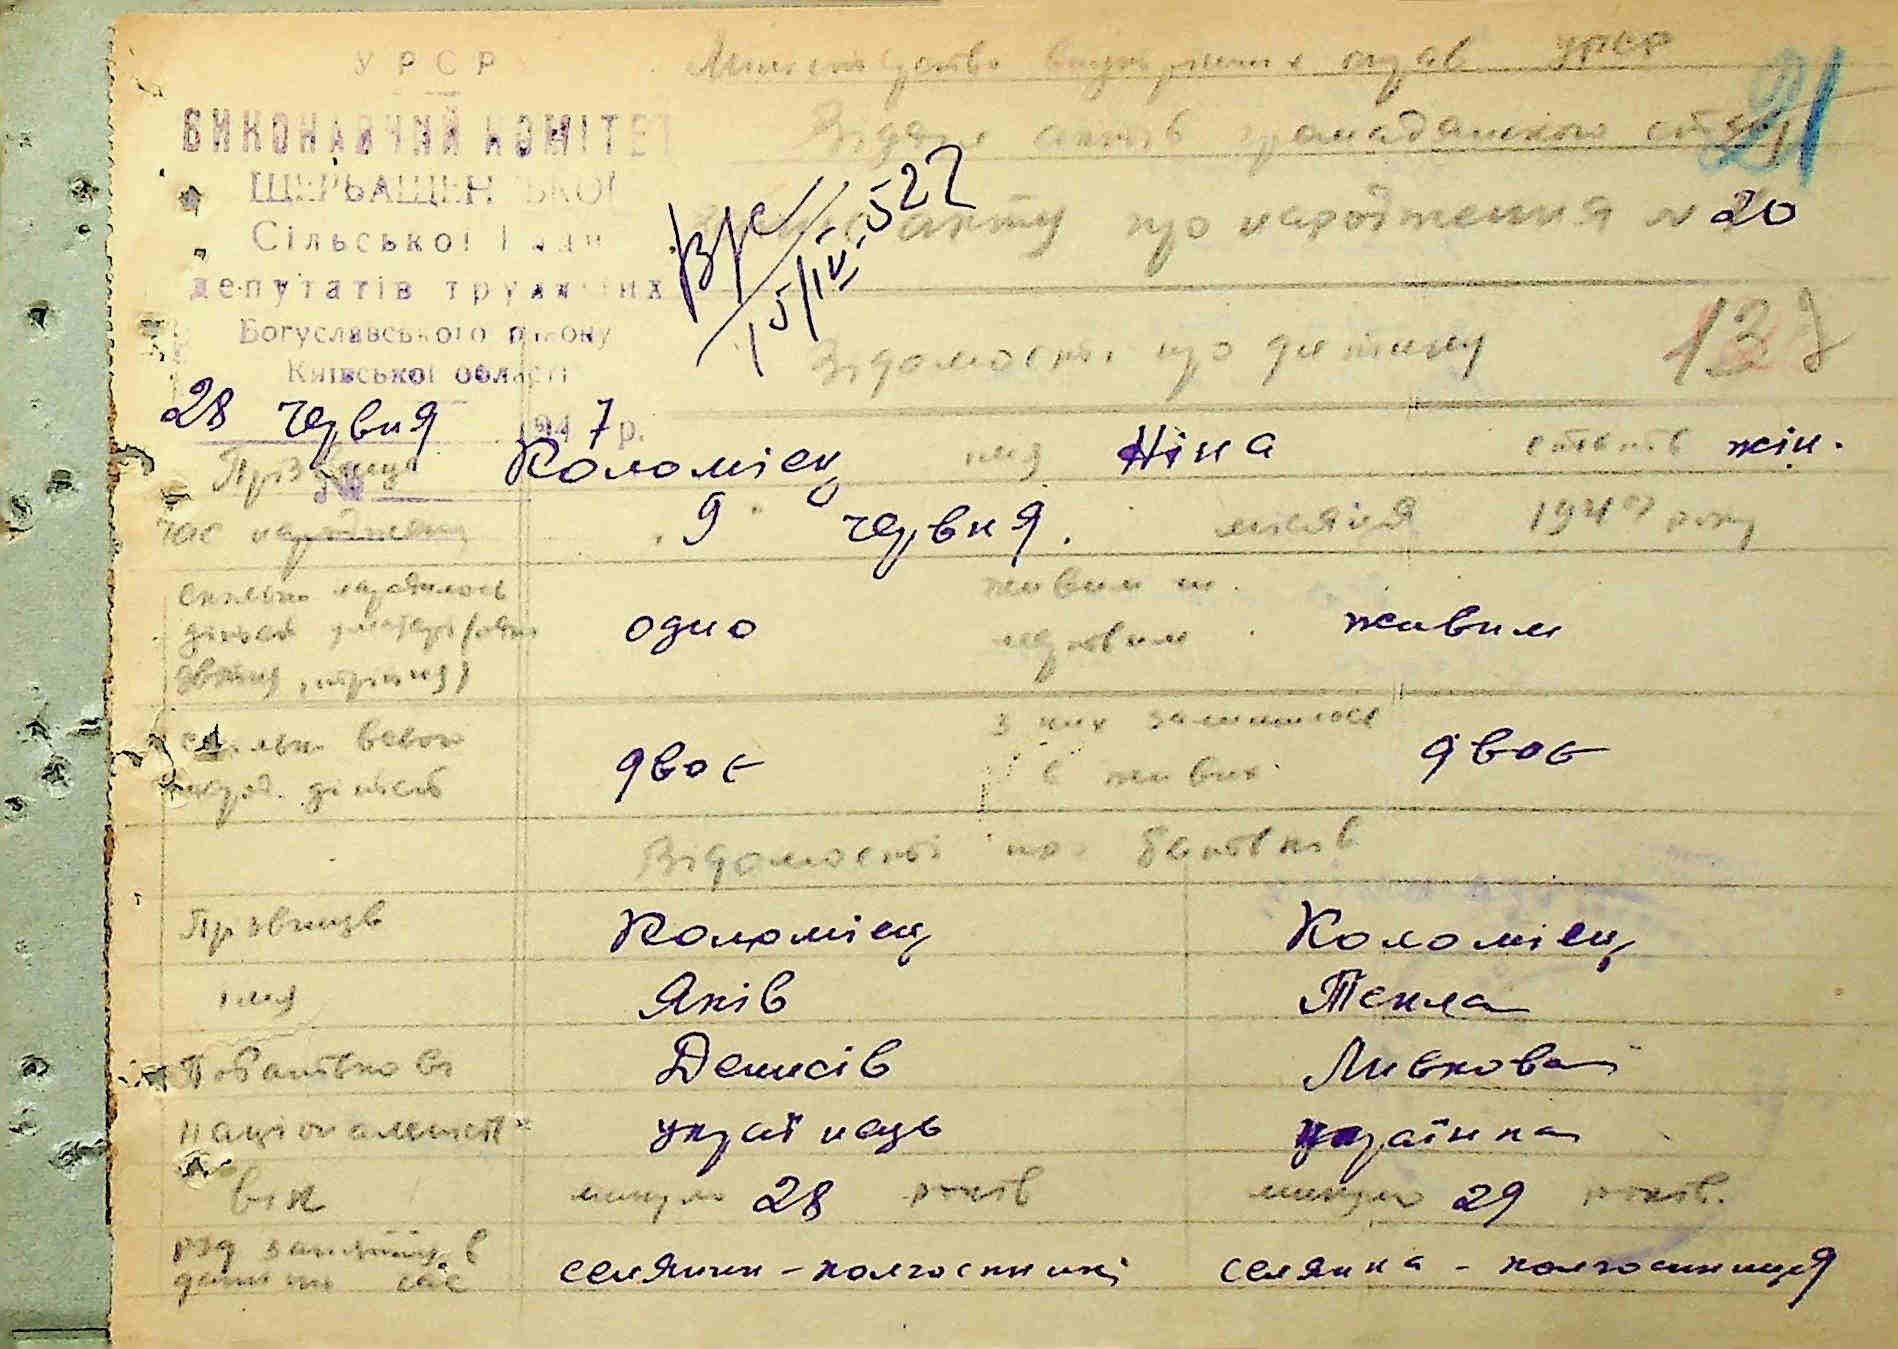 УРСР
Міністерство внутрішніх справ УРСР
ВИКОНАВЧИЙ КОМІТЕТ
Відділ актів громадянського стану
21
ЩЕРБАШЕНСЬКОЇ
Сільської Ради
депутатів трудящих
Богуславського району
Київської області
акту про народження № 20
15/IV-52
Відомості про дитину
13
28 червня 1947 р.
Прізвище Коломієць імя Ніна стать жін.
час народження 9 червня. місяця 1947 року
скільки народилось
дітей
двійня, трійня)
одно
живим чи
мертвим
живим
скільки всього
народ. дітей
двоє
з них залишилося
в живих
двоє
Відомості про батьків
Прізвище Коломієць Коломієць
імя Яків Текла
Побатькові Денисів Левкова
національність українець українка
вік минуло 28 років минуло 29 років.
рід занять в
даний час
селянин-колгоспник селянка-колгоспниця